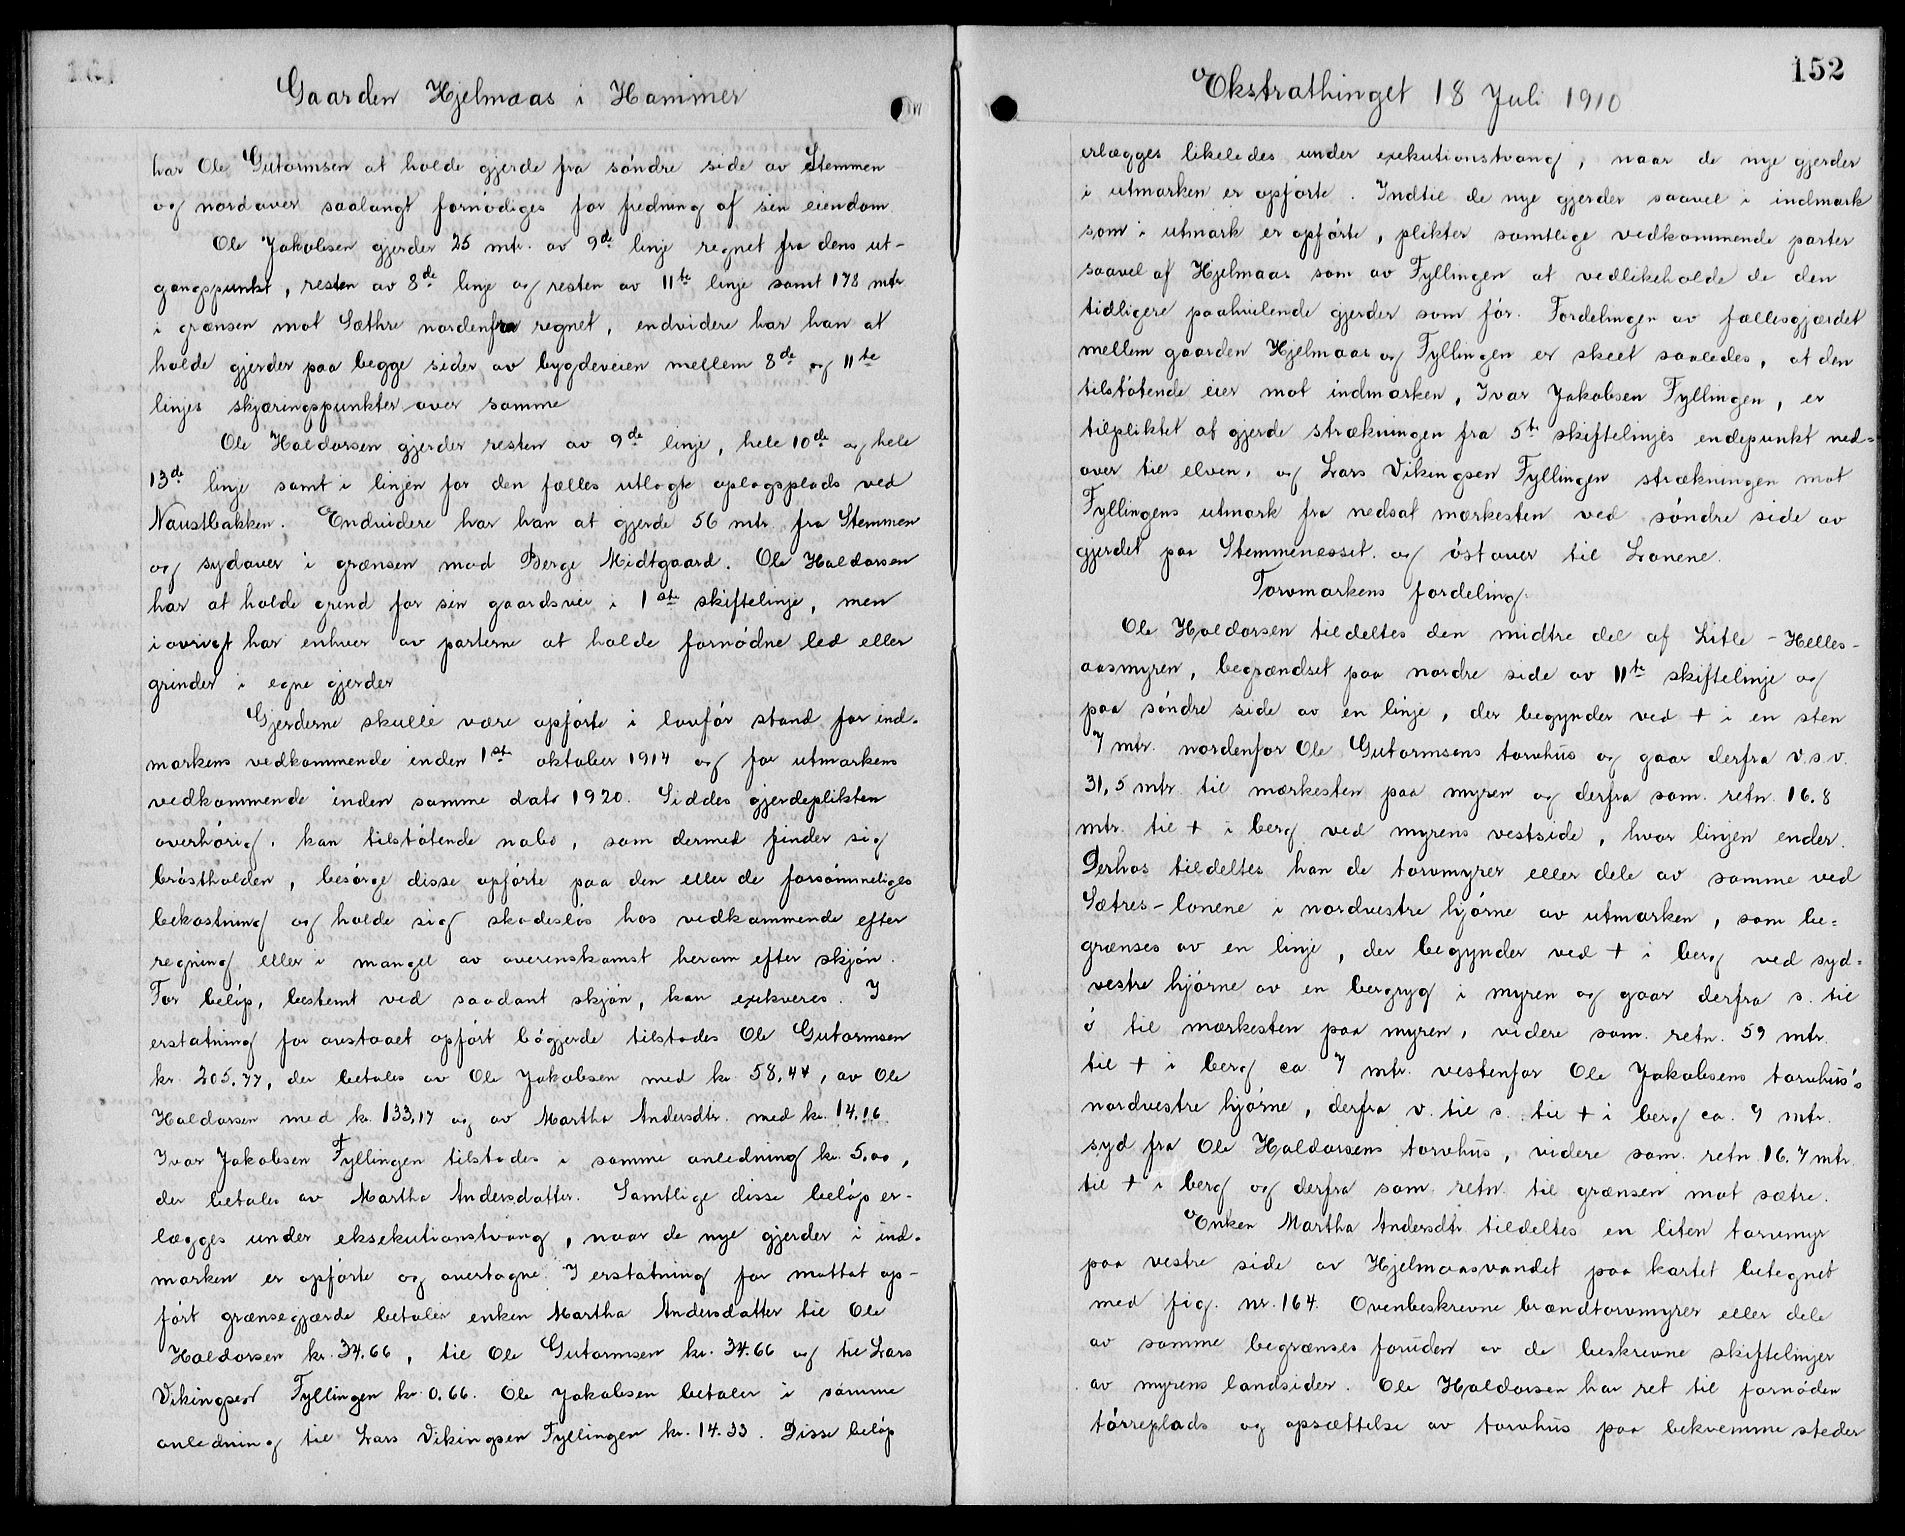 Gaarden Hjelmaas i Hammer
har Ole Gutormsen at holde gjerde fra söndre side av Stemmen
og nordover saalangt fornödiges for fredning af sin eiendom
Ole Jakobsen gjerder 25 mtr. av 9de linje regnet fra dens ut-
gangspunkt, resten av 8de linje og resten av 11te linje samt 178 mtr
i grænsen mot Sæthre nordenfra regnet, endvidere har han at
holde gjerder paa begge sider av bygdeveien mellem 8de og 11te
linjes skjæringspunkter over samme
Ole Haldorsen gjerder resten av 9de linje, hele 10de og hele
13de linje samt i linjen for den fælles utlagte oplagsplads ved
Naustbakken. Endvidere har han at gjerde 56 mtr. fra Stemmen
og sydover i grænsen mod Berge Midtgaard. Ole Haldorsen
har at holde grind for sin gaardsvei i 1ste skiftelinje, men
iovrigt har enhver av parterne at holde fornödne led eller
grinder i egne gjerder
Gjerderne skulle være opförte i lovför stand for ind-
markens vedkommende inden 1st oktober 1914 og for utmarkens
vedkommende inden samme dato 1920. Siddes gjerdeplikten
overhörig, kan tilstötende nabo, som dermed finder sig
bröstholden, besörge disse opförte paa den eller de forsömmeliges
bekostning og holde sig skadeslös hos vedkommende efter
regning eller i mangel av overenskomst herom efter skjön.
For belöp, bestemt ved saadant skjön, kan exekveres. I
erstatning for avstaaet opfört bögjerde tilstodes Ole Gutormsen
kr. 205,77, der betales av Ole Jakobsen med kr. 58,44, av Ole
Haldorsen med kr. 133,17 og av Martha Andersdtr. med kr. 14,16
Ivar Jakobsen Fyllingen tilstodes i samme anledning kr. 5,00,
der betales av Martha Andersdatter. Samtlige disse belöp er-
lægges under eksekutionstvang, naar de nye gjerder i ind-
marken er opförte og overtagne. I erstatning for mottat op-
fört grænsegjærde betaler enken Martha Andersdatter til Ole
Haldorsen kr. 34.66, til Ole Gutormsen kr. 34.66 og til Lars
Vikingsen Fyllingen kr. 0.66. Ole Jakobsen betaler i samme
anledning til Lars Vikingsen Fyllingen kr. 14.33. Disse belöp
152
Ekstrathinget 18 Juli 1910
erlægges likeledes under exekutionstvang, naar de nye gjerder
i utmarken er opförte. Indtil de nye gjerder saavel i indmark
som i utmark er opförte, plikter samtlige vedkommende parter
saavel af Hjelmaas som av Fyllingen at vedlikeholde de den
tidligere paahvilende gjerder som för. Fordelingen av fællesgjærdet
mellem gaarden Hjelmaas og Fyllingen er skeet saaledes, at den
tilstötende eier mot indmarken, Ivar Jakobsen Fyllingen, er
tilpliktet at gjerde strækningen fra 5te skiftelinjes endepunkt ned=
over til elven, og Lars Vikingsen Fyllingen strækningen mot
Fyllingens utmark fra nedsat mærkesten ved söndre side av
gjerdet paa Stemmenesset og östover til Lonene.
Torvmarkens fordeling.
Ole Haldorsen tildeltes den midtre del af Litle-Helles-
aasmyren, begrændset paa nordre side av 11te skiftelinje og
paa söndre side av en linje, der begynder ved + i en sten
7 mtr. nordenfor Ole Gutormsens torvhus og gaar derfra v.s.v.
31,5 mtr. til mærkesten paa myren og derfra sam. retn. 16.8
mtr. til + i berg ved myrens vestside, hvor linjen ender.
Derhos tildeltes han de torvmyrer eller dele av samme ved
Sætres-lonene i nordvestre hjörne av utmarken, som be=
grænses av en linje, der begynder ved + i berg ved syd=
vestre hjörne av en bergryg i myren og gaar derfra s. til
ö til mærkesten paa myren, videre sam. retn. 59 mtr.
til + i berg ca 7 mtr. vestenfor Ole Jakobsens torvhus's
nordvestre hjörne, derfra v. til s. til + i berg ca. 7 mtr.
syd fra Ole Haldorsens torvhus, videre sam. retn. 16.7 mtr.
til + i berg og derfra sam. retn. til grænsen mot sætre.
Enken Martha Andersdtr tildeltes en liten torvmyr
paa vestre side av Hjelmaasvandet paa kartet betegnet
med fig. nr. 164. Ovenbeskrevne brændtorvmyrer eller dele
av samme begrænses foruden av de beskrevne skiftelinjer
av myrens landsider. Ole Haldorsen har ret til fornöden
törreplads og opsættelse av torvhus paa bekvemme steder